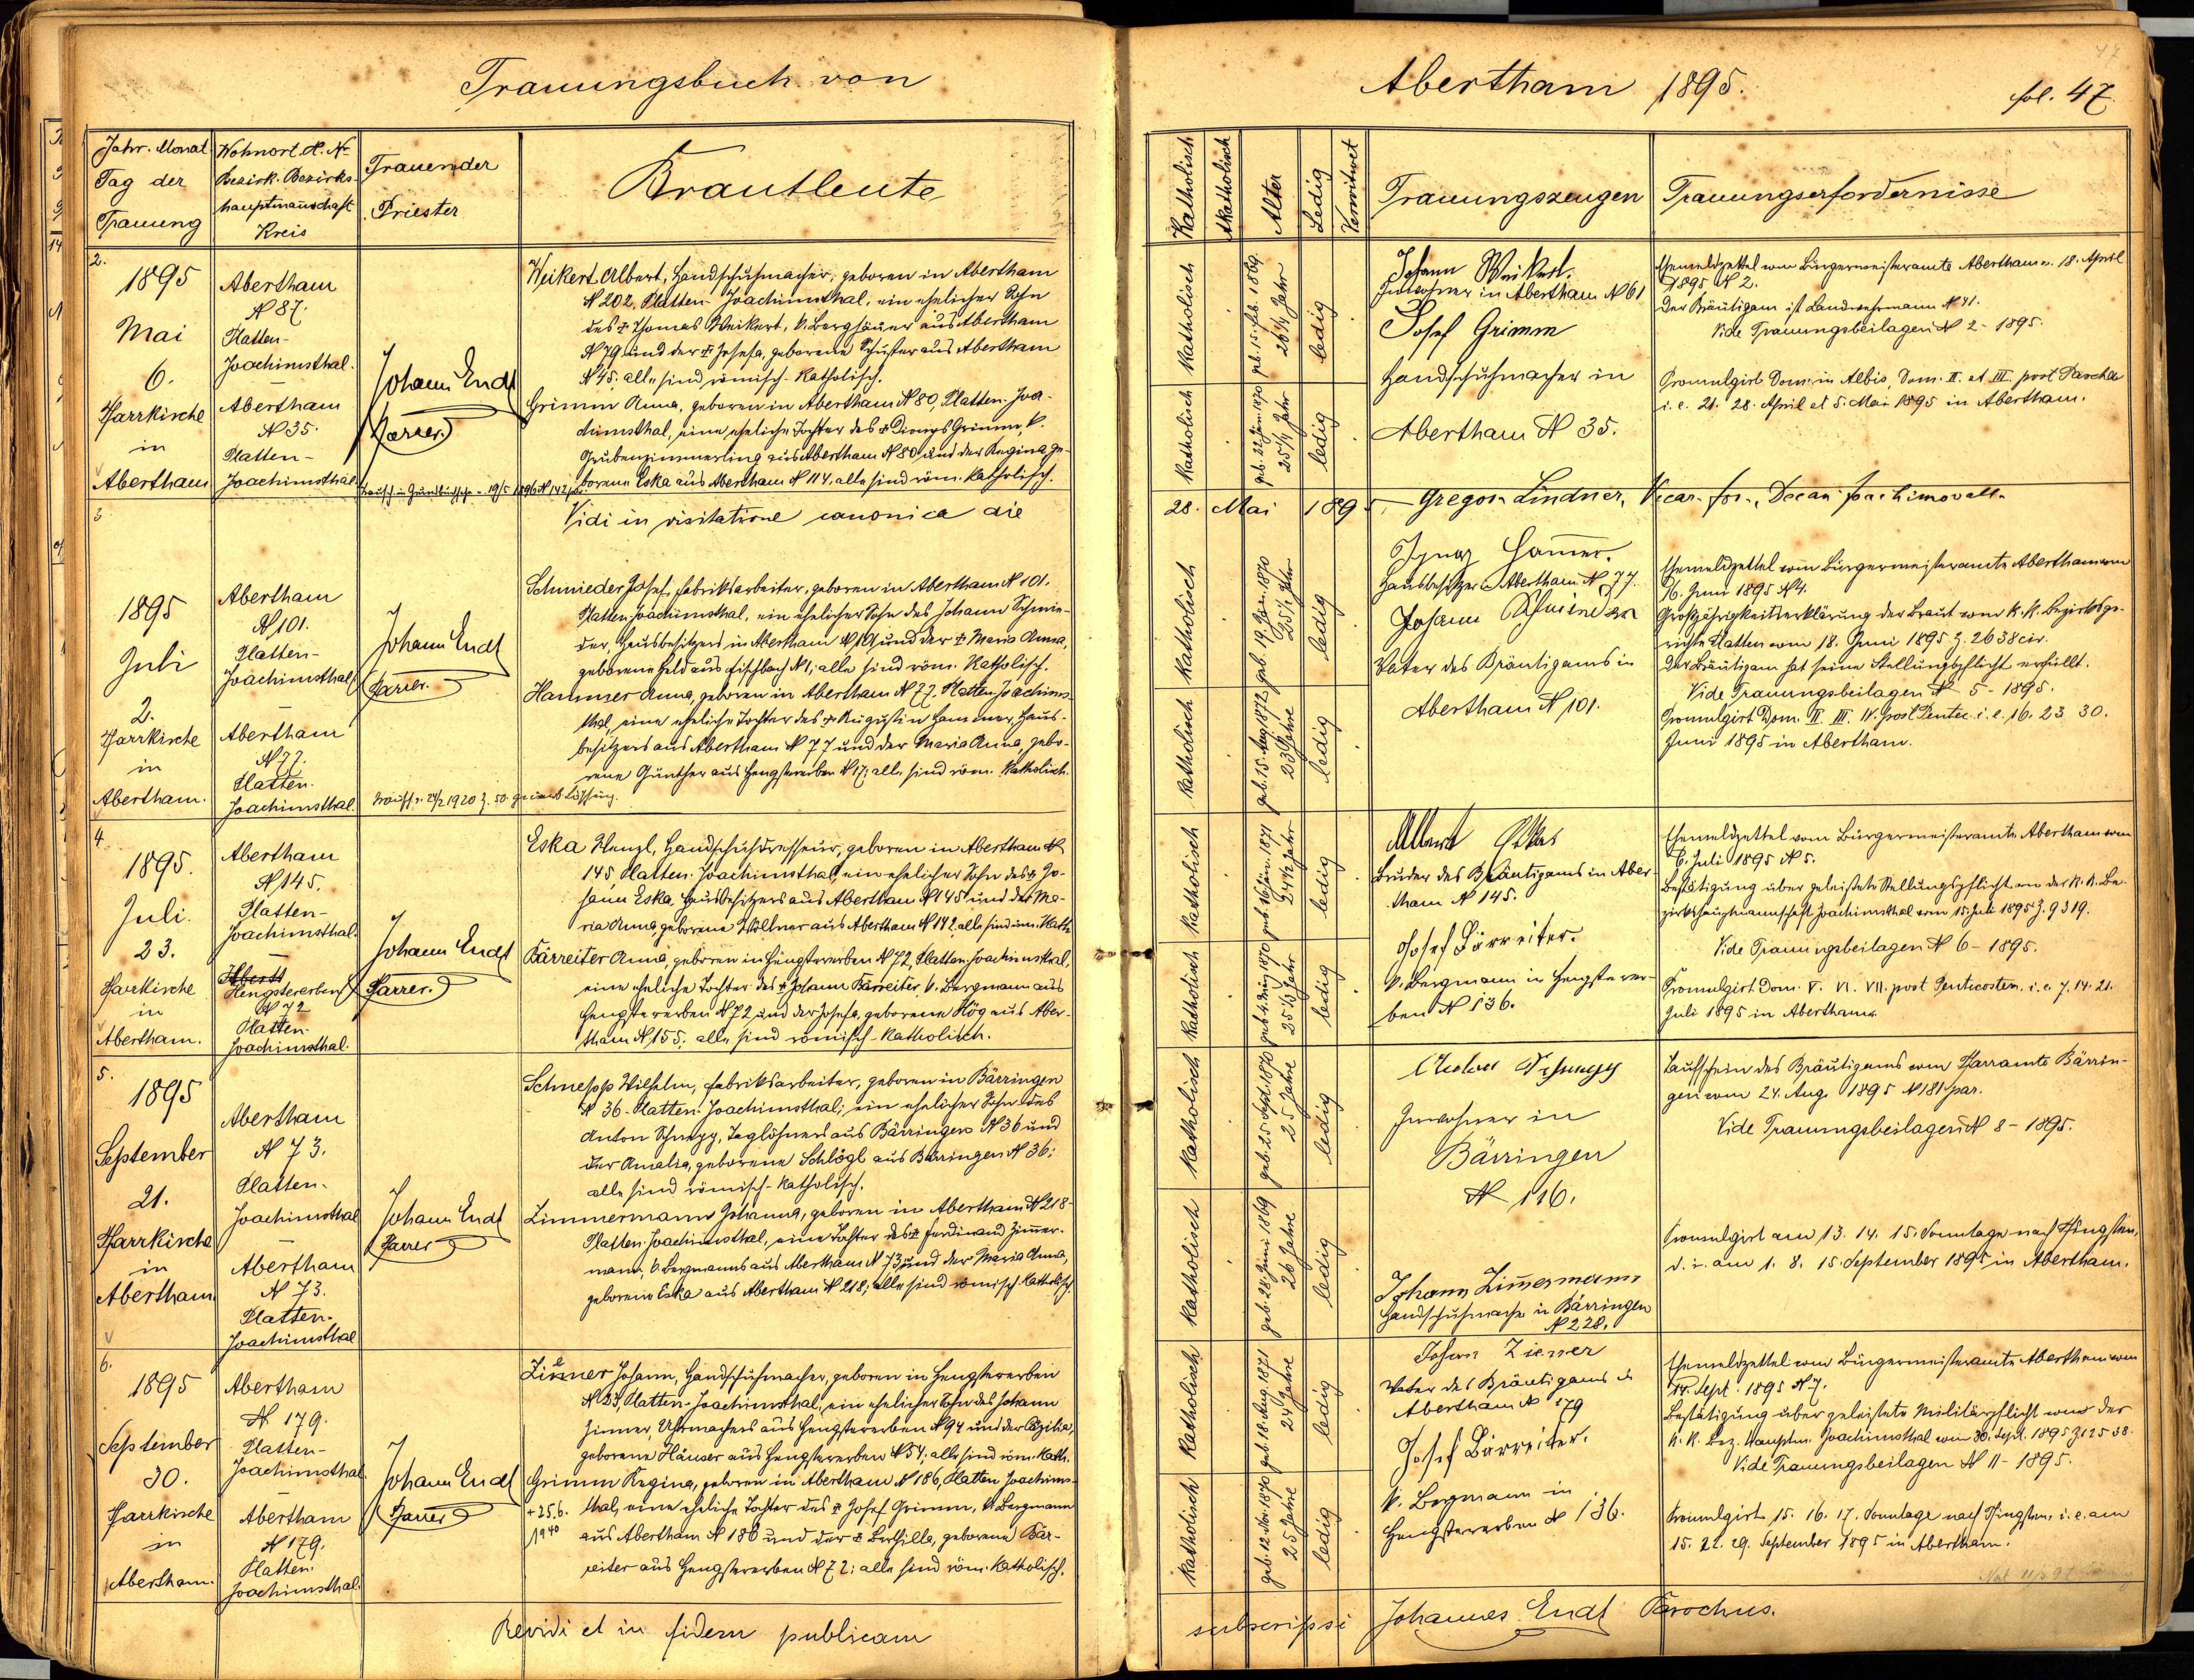 Trauungsbuch von
Jahr. Monat
Tag der
Trauung
Wohnort. H. N
Bezirk. Bezirks-
hauptmannschaft
Kreis
Trauender
Priester
Brautleute
2.
1895
Mai
6.
Pfarrkirche
in
Abertham
Abertham
N 87.
Platten-
Joachimsthal.
Abertham
N 35.
Platten-
Joachimsthal
Johann Endt
Pfarrer.
Weikert Albert, Handschuhmacher, geboren in Abertham
N 202, Platten-Joachimsthal, ein ehelicher Sohn
des † Thomas Weikert, k. Berghäuer aus Abertham
N 79 und der † Josefa, geborene Schuster aus Abertham
N 45. alle sind römisch-katholisch.
Grimm Anna, geboren in Abertham N 80, Platten-Joa-
chimsthal, eine eheliche Tochter des † Dionys Grimm, k.
Grubenzimmerling aus Abertham N 80 und der Regina ge-
borene Eska aus Abertham N 114. alle sind röm. katholisch.
3
Vidi in visitatione canonica die
1895
Juli
2.
Pfarrkirche
in
Abertham.
Abertham
N 101.
Platten-
Joachimsthal
Abertham
N 77.
Platten.
Joachimsthal.
Johann Endt
Pfarrer.
Schmieder Josef, Fabriksarbeiter, geboren in Abertham N 101.
Platten-Joachimsthal, ein ehelicher Sohn des Johann Schmie-
der, Hausbesitzers in Abertham N 101 und der † Maria Anna,
geborene Held aus Fischbach N 1; alle sind röm. katholisch.
Hammer Anna, geboren in Abertham N 77. Platten-Joachims-
thal, eine eheliche Tochter des † Augustin Hammer, Haus-
besitzers aus Abertham N 77 und der Maria Anna, gebo-
rene Günther aus Hengstererben N 17; alle sind röm. katholisch.
4
1895.
Juli.
23.
Pfarrkirche
in
Abertham.
Abertham
N 145.
Platten-
Joachimsthal.
Hengstererben
N 72
Platten-
Joachimsthal.
Johann Endt
Pfarrer.
Eska Wenzl, Handschuhdresseur, geboren in Abertham N
145 Platten-Joachimsthal, ein ehelicher Sohn des † Jo-
hann Eska, Hausbesitzers aus Abertham N 145 und der Ma-
ria Anna, geborene Wöllner aus Abertham N 142. alle sind röm. kath.
Bärreiter Anna, geboren in Hengstererben N 72, Platten-Joachimsthal,
eine eheliche Tochter des † Johann Bärreiter, k. Bergmann aus
Hengstererben N 72 und der Josefa, geborene Hög aus Aber-
tham N 155; alle sind römisch-katholisch.
5.
1895
September
21.
Pfarrkirche
in
Abertham
Abertham
N 73.
Platten-
Joachimsthal
Abertham
N 73.
Platten-
Joachimsthal
Johann Endt
Pfarrer
Schnepp Wilhelm, Fabriksarbeiter, geboren in Bärringen
N 36-Platten-Joachimsthal; ein ehelicher Sohn des
Anton Schnepp, Taglöhners aus Bärringen N 36 und
der Amalia, geborene Schlögl aus Bärringen N 36;
alle sind römisch-katholisch.
Zimmermann Johanna, geboren in Abertham N 218-
Platten-Joachimsthal, eine Tochter des † Ferdinand Zimmer-
mann, k. Bergmanns aus Abertham N 73, und der Maria Anna,
geborene Eska aus Abertham N 218; alle sind römisch-katholisch.
6.
1895
September
30.
Pfarrkirche
in
Abertham.
Abertham
N 179.
Platten-
Joachimsthal
Abertham
N 179.
Platten.
Joachimsthal.
Johann Endt
Pfarrer
Ziener Johann, Handschuhmacher, geboren in Hengstererben
Platten-Joachimsthal, ein ehelicher Sohn des Johann
Uhrmachers aus Hengstererben N 94 und der Cäzilia,
geborene Häuser aus Hengstererben N 34; alle sind röm. kath.
Grimm Regina, geboren in Abertham N 186, Platten Joachims-
thal, eine eheliche Tochter des † Josef Grimm, k. Bergmann
aus Abertham N 186 und der † geborene Bär-
reiter aus Hengstererben N 72; alle sind röm. katholisch.
+ 25.6.
1940
Revidi et in fidem publicam
Abertham 1895.
fol. 47
47
Katholisch
Akatholisch
Alter
Ledig
Verwitwet
Trauungszeugen
Trauungserfordernisse
Katholisch
geb. 15. Feb. 1869.
26 1/4 Jahr
ledig
Katholisch
geb. 22. Jän. 1870
25 1/4 Jahr
ledig
Johann Weikert.
Inwohner in Abertham N 61
Josef Grimm
Handschuhmacher in
Abertham N 35.
Ehemeldzettel vom Bürgermeisteramte Abertham v. 18. April
1895 N 2.
Der Bräutigam ist Landwehrmann N 41.
Vide Trauungsbeilagen N 2 - 1895.
Promulgirt Dom. in Albis, Dom. II. et III. post Pascha
i. e. 21. 28. April et 5. Mai 1895 in Abertham.
28. Mai 1895 - Gregor Lindner, Vicar. for., Decan Joachimovall.
Katholisch
geb. 19. Jän. 1870
25 1/2 Jahr
ledig
Katholisch
geb. 15. Aug. 1872
23 Jahre
ledig
Ignaz Hammer.
Hausbesitzer in Abertham N 77.
Johann Schmieder
Vater des Bräutigams in
Abertham N 101.
Ehemeldzettel vom Bürgermeisteramte Abertham vom
16. Juni 1895 N 4.
Großjährigkeitserklärung der Braut vom k. k. Bezirksge-
richte Platten vom 18. Juni 1895 Z. 2638 civ.
Der Bräutigam hat seine Stellungspflicht erfüllt.
Vide Trauungsbeilagen N 5 - 1895.
Promulgirt Dom. II. III. IV. post Pentec. i. e. 16. 23. 30.
Juni 1895 in Abertham.
Katholisch
geb. 16. Jän. 1871
24 1/2 Jahr
ledig
Katholisch
25 1/3 Jahr
ledig
Albert Eska
Bruder des Bräutigams in Aber-
tham N 145.
Josef Bärreiter.
k. Bergmann in Hengsterer-
ben N 136.
Ehemeldzettel vom Bürgermeisteramte Abertham vom
6. Juli 1895 N 5.
Bestätigung über geleistete Stellungspflicht von der k. k. Be-
zirkshauptmannschaft Joachimsthal vom 15. Juli 1895 Z. 9319.
Vide Trauungsbeilagen N 6 - 1895.
Promulgirt Dom. V. VI. VII. post Pentecosten. i. e. 7. 14. 21.
Juli 1895 in Abertham.
Katholisch
geb. 25. Sept. 1870
25 Jahre
ledig
Katholisch
geb. 28. Juni 1869
26 Jahre
ledig
Anton Schnepp
Inwohner in
Bärringen
N 116.
Johann Zimmermann
Handschuhmacher in Bärringen
N 228.
Taufschein des Bräutigams vom Pfarramte Bärrin-
gen vom 24. Aug. 1895 N 181 par.
Vide Trauungsbeilagen N 8 - 1895.
Promulgirt am 13. 14. 15. Sonntage nach Pfingsten,
d. i. am 1. 8. 15. September 1895 in Abertham.
Katholisch
geb. 18. Aug. 1871
24 Jahre
ledig
Katholisch
geb. 12. Nov. 1870
25 Jahre
ledig
Johann Ziener
Vater des Bräutigams in
Abertham N 179
Josef Bärreiter.
k. Bergmann in
Hengstererben N 136.
Ehemeldzettel vom Bürgermeisteramte Abertham vom
14. Sept. 1895 N 7.
Bestätigung über geleistete Militärpflicht von der
k. k. Bez. Hauptm. Joachimsthal vom 30. Sept. 1895 Z. 12538.
Vide Trauungsbeilagen N 11 - 1895.
Promulgirt 15. 16. 17. Sonntage nach Pfingsten, i. e. am
15. 22. 29. September 1895 in Abertham.
subscripsi Johannes Endt Parochus.